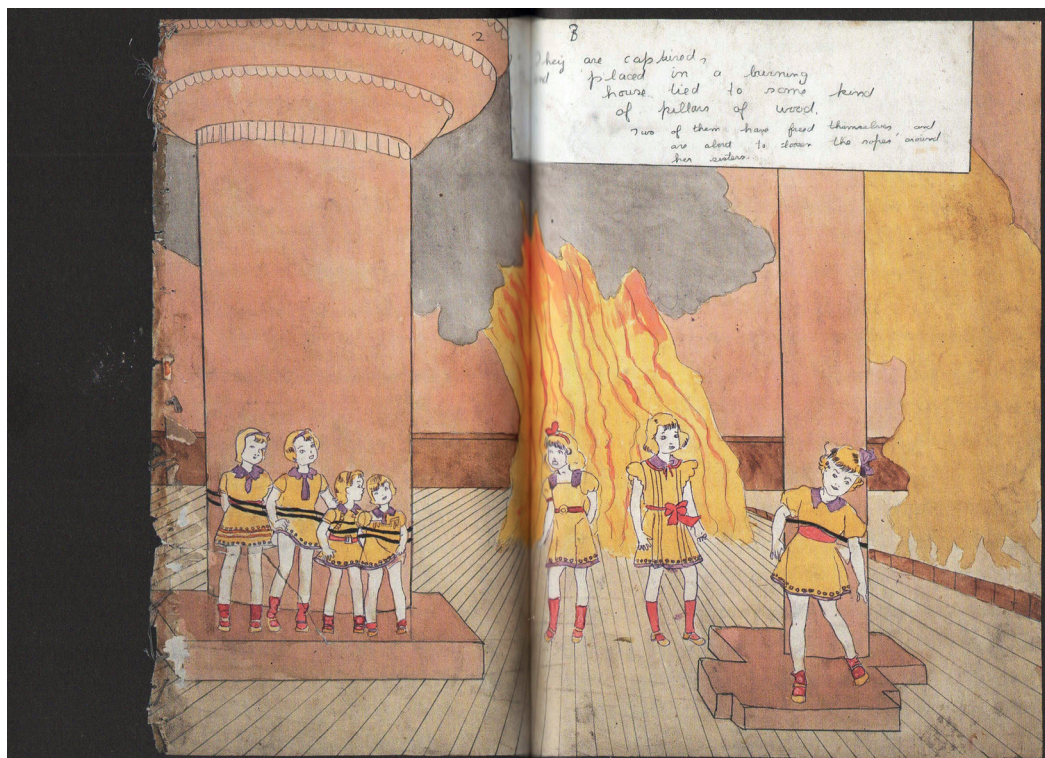 2 B
They are captured,
and placed in a burning
house tied to some kind
of pillars of wood.
Two of them have freed themselves, and
are about to loosen the ropes around
her sisters.